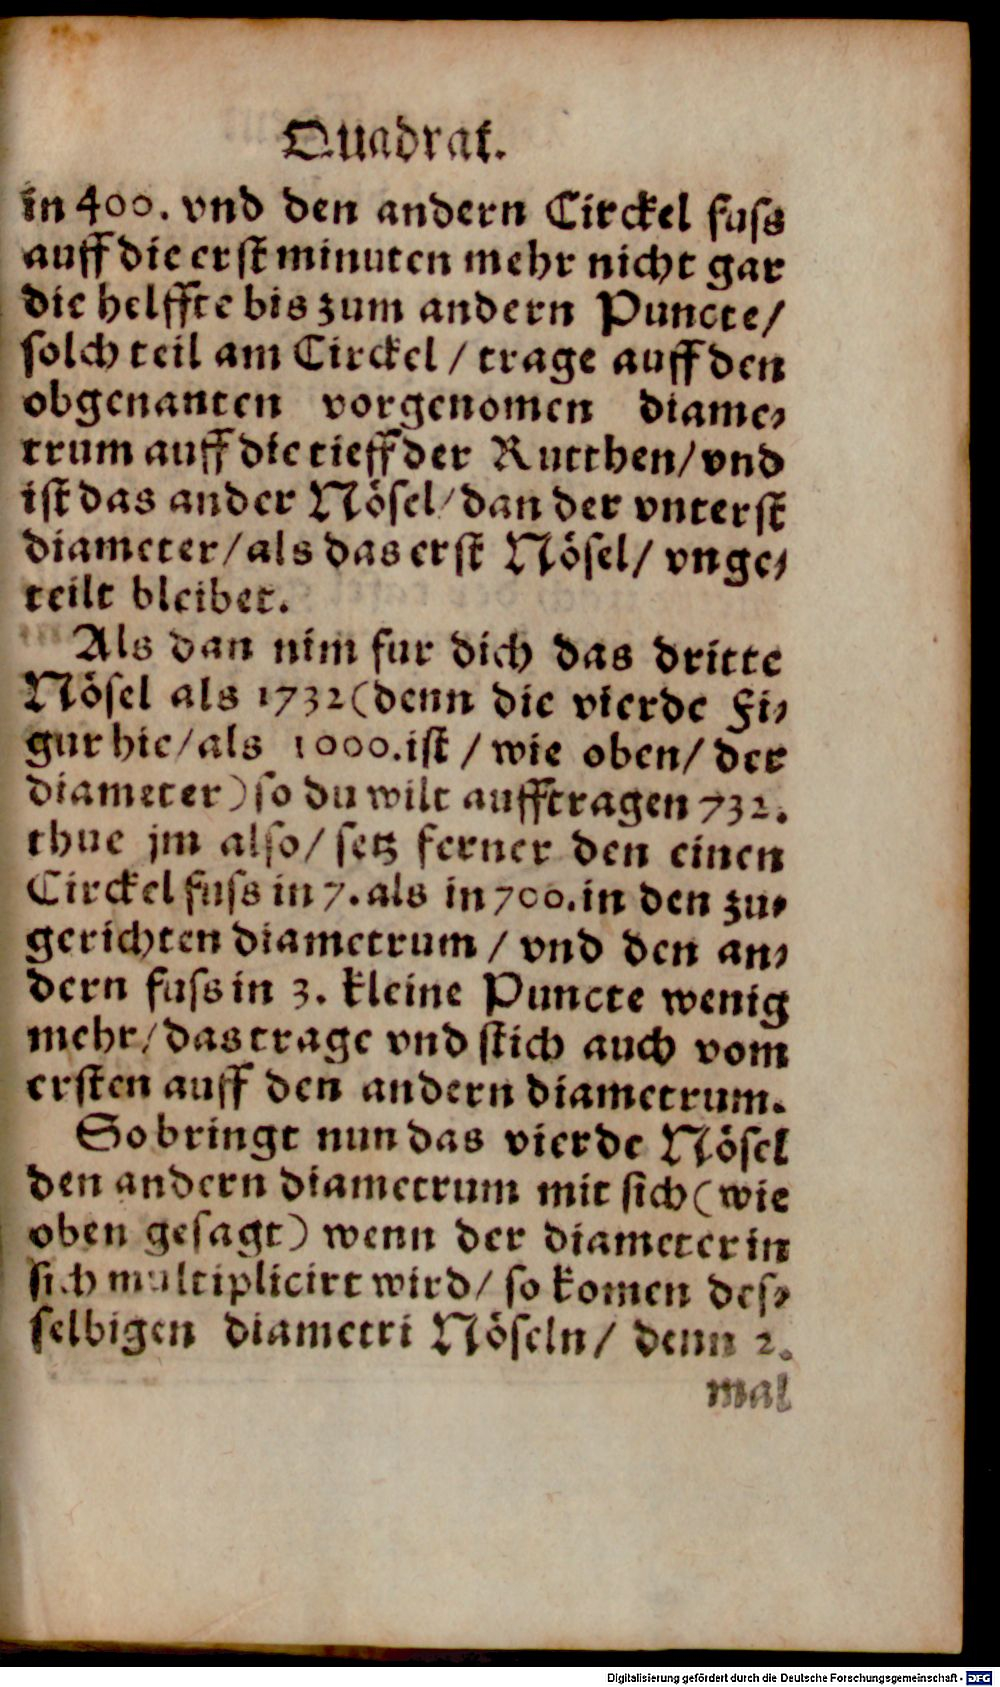 Quadrat.
in 400. vnd den andern Circkel fuss
auff die erst minuten mehr nicht gar
die helffte bis zum andern Puncte/
solch teil am Circkel / trage auff den
obgenanten vorgenomen diame⸗
trum auff die tieff der Rutthen/ vnd
ist das ander Nösel/ dan der vnterst
diameter/ als das erst Nösel/ vnge⸗
teilt bleibet.
Als dan nim fur dich das dritte
Nösel als 1732 (denn die vierde Fi⸗
gur hie/ als 1000. ist / wie oben/ der
diameter) so du wilt aufftragen 732.
thue jm also/ setz ferner den einen
Circkel fuss in 7. als in 700. in den zu⸗
gerichten diametrum / vnd den an⸗
dern fuss in 3. kleine Puncte wenig
mehr/ das trage vnd stich auch vom
ersten auff den andern diametrum.
So bringt nun das vierde Nösel
den andern diametrum mit sich (wie
oben gesagt) wenn der diameter in
sich multiplicirt wird/ so komen des⸗
selbigen diametri Nöseln/ denn 2.
mal
Digitalisierung gefördert durch die Deutsche Forschungsgemeinschaft - DFG